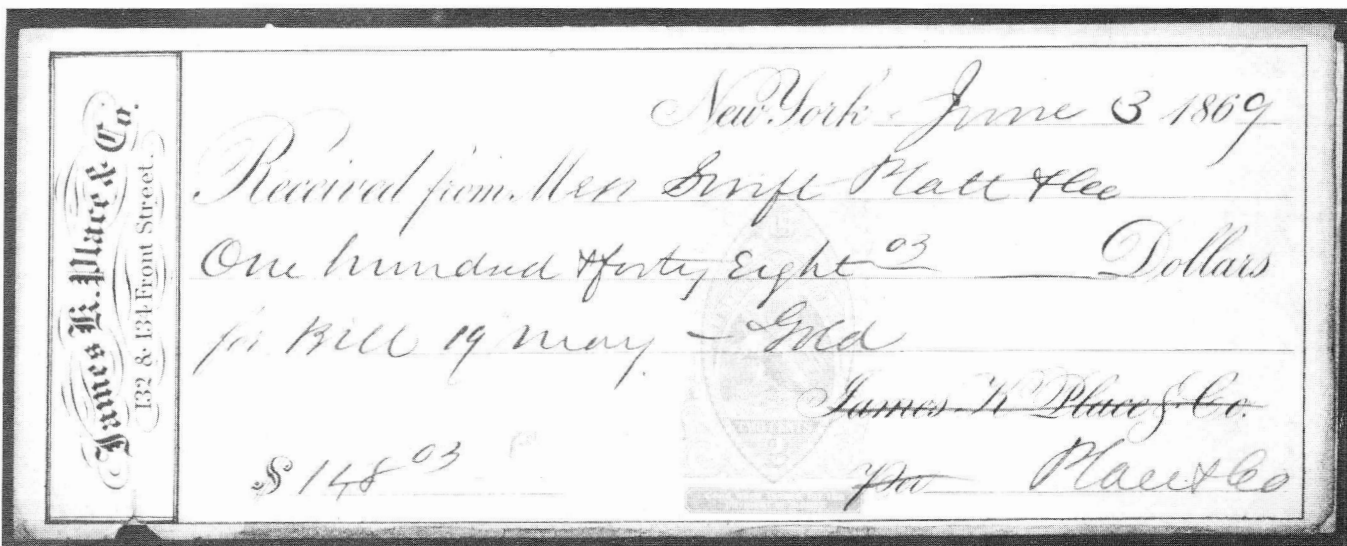 James K. Place & Co.
132 & 134 Front Street.
New York June 3 1869
Received from Mess Swift Platt & Co
One hundred & forty Eight 03 Dollars
for Bill 19 May - Gold
James K Place & Co.
$ 148 03
Per Place & Co
TWO CENTS